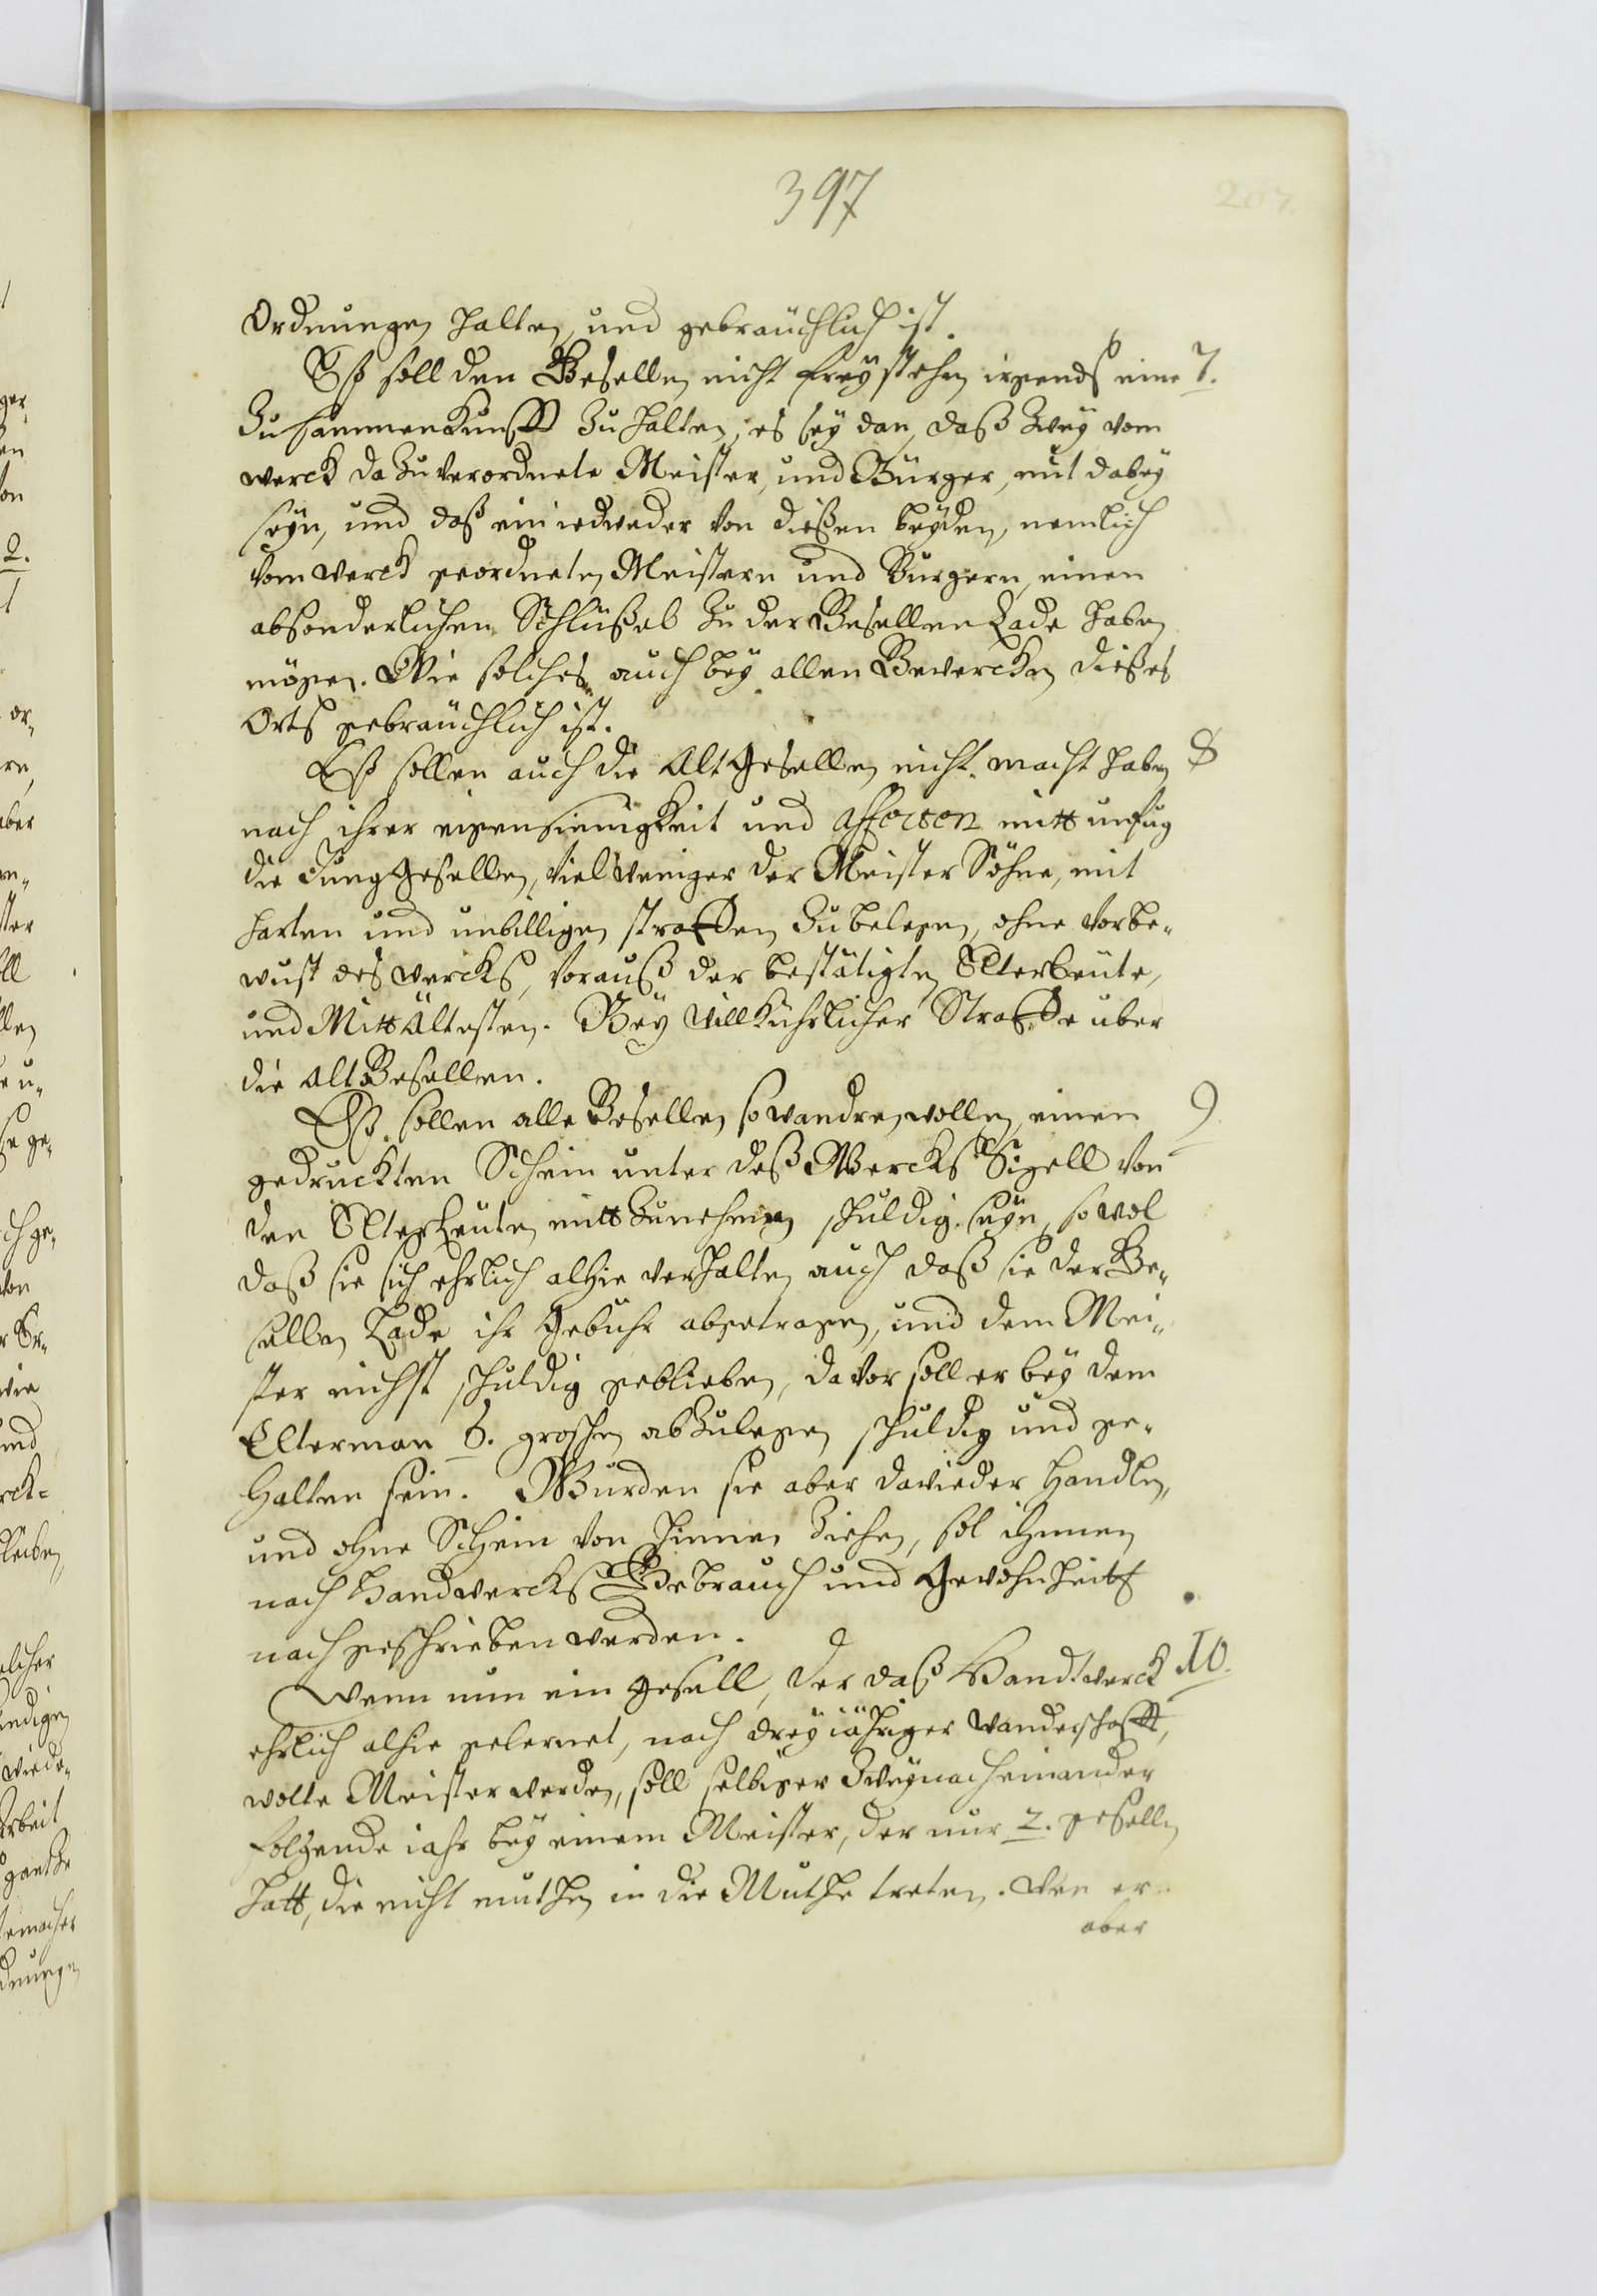 397
207.
Ordnungen halten, und gebräuchlich ist.
Eß soll den Gesellen nicht freÿ stehen irgends eine 7.
Zusammenkunfft zu halten, es seÿ dan, daß zweÿ vom
werck dazu verordnete Meister, und Bürger, mit dabeÿ
seÿn, und daß ein iedweder von dießen beÿden, nemlich
vom werck geordneten Meistern und Bürgern, einen
absonderlichen Schlüßel zu der Gesellen Lade haben
mögen. Wie solches auch beÿ allen Gewercken dießes
Orts gebräuchlich ist.
Eß sollen auch die Alt Gesellen nicht macht haben 8
nach ihrer eigensinnigkeit und affecten mitt unfug
die Jung Gesellen, viel weniger der Meister Söhne, mit
harten und unbilligen straffen zu belegen, ohne vorbe-
wust des wercks, voraus der bestätigten Elterleute,
und Mitt Ältesten. Beÿ willkührlicher Straffe uber
die Alt Gesellen.
Eß sollen alle Gesellen so wandren wollen, einen 9.
gedruckten Schein unter deß Wercks Sigell von
den Elterleuten mitt zunehmen schuldig seÿn, so wol
daß sie sich ehrlich alhie verhalten, auch daß sie der Ge-
sellen Lade ihr Gebühr abgetragen, und dem Mei-
ster nichst schuldig geblieben, davor soll er beÿ dem
Elterman 6. groschen abzulegen schuldig und ge-
halten sein. Würden sie aber dawieder handlen,
und ohne Schein von hinnen ziehen, sol ihnen
nach Handwercks Gebrauch und Gewohnheitt
nachgeschrieben werden.
Wenn nun ein gesell, der daß Handtwerck 10.
ehrlich alhie gelernet, nach dreÿ iähriger wanderschafft,
wolte Meister werden, soll selbiger zweÿ nach einander
folgende iahr beÿ einem Meister, der nur 2. gesellen
hatt, die nicht muthen, in die Muthe treten. Wen er
aber